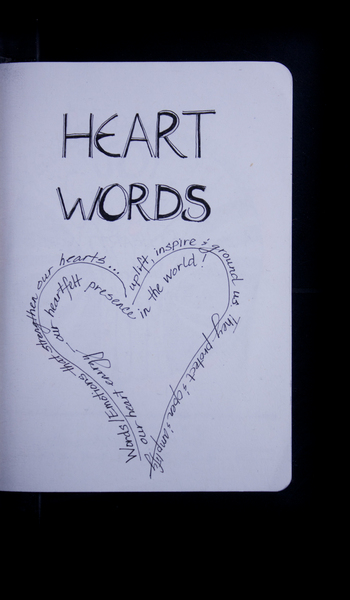 HEART
WORDS
Words/Emotions that strengthen our hearts...
uplift, inspire & ground us
They protect & open & amplify
our heart energy - our heartfelt presence
in the world!